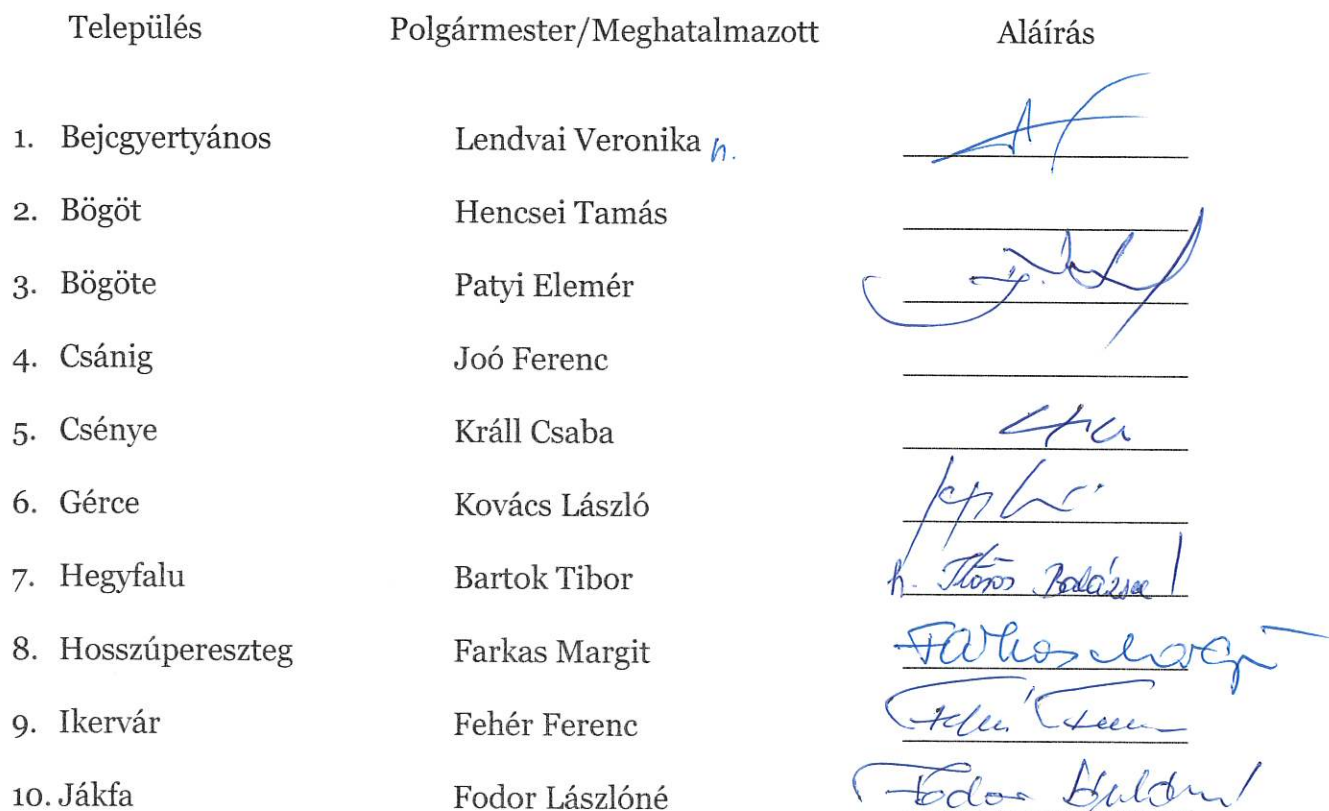 Település Polgármester/Meghatalmazott Aláírás
1. Bejcgyertyános Lendvai Veronika h.
2. Bögöt Hencsei Tamás
3. Bögöte Patyi Elemér
4. Csánig Joó Ferenc
5. Csénye Králl Csaba
6. Gérce Kovács László
7. Hegyfalu Bartok Tibor h.
8. Hosszúpereszteg Farkas Margit Farkas Margit
9. Ikervár Fehér Ferenc Fehér Ferenc
10. Jákfa Fodor Lászlóné Fodor Lászlóné